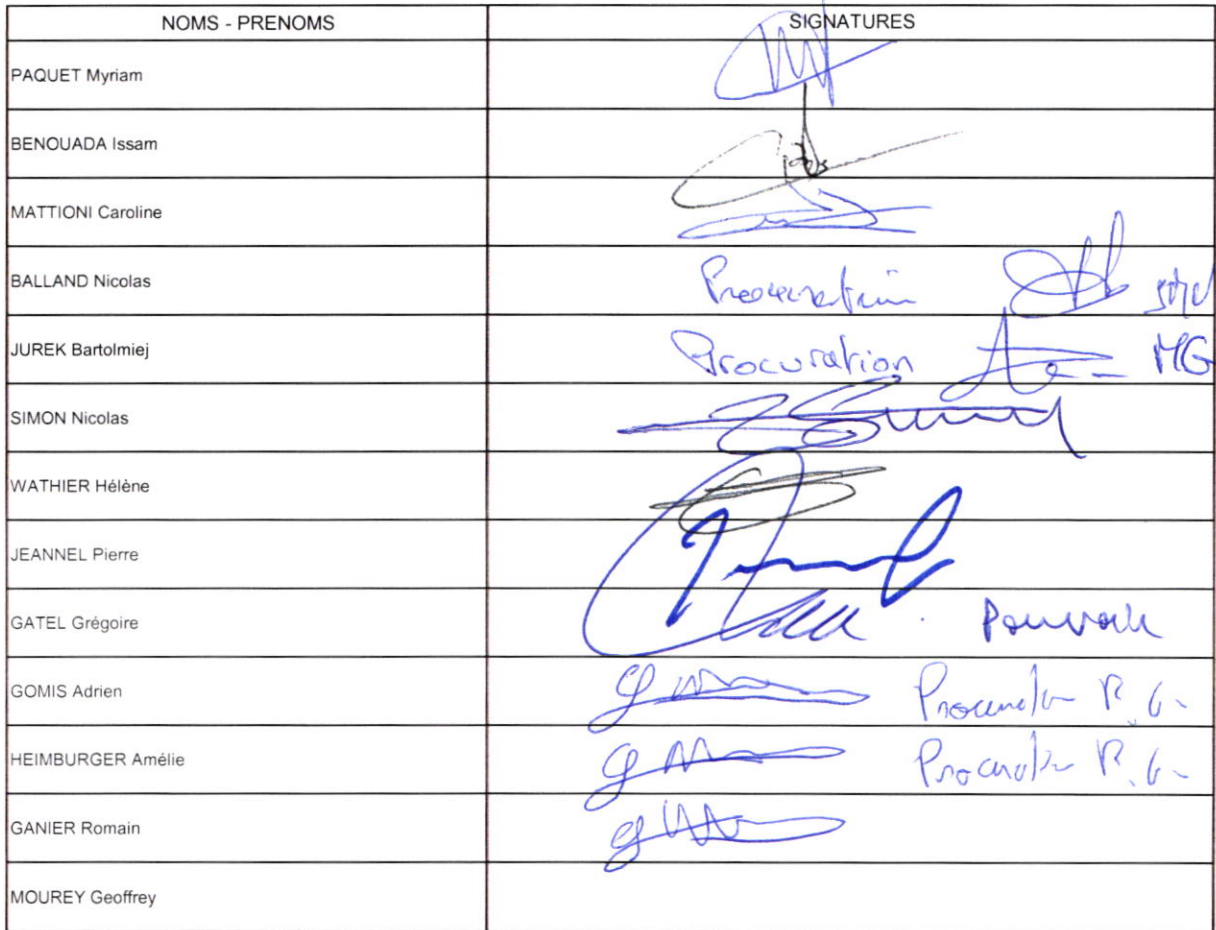 NOMS - PRENOMS SIGNATURES
PAQUET Myriam
BENOUADA Issam
MATTIONI Caroline
BALLAND Nicolas Procuration
JUREK Bartolmiej Procuration MG
SIMON Nicolas
WATHIER Hélène
JEANNEL Pierre
GATEL Grégoire Pouvoir
GOMIS Adrien Procuration R.G.
HEIMBURGER Amélie Procuration R.G.
GANIER Romain
MOUREY Geoffrey